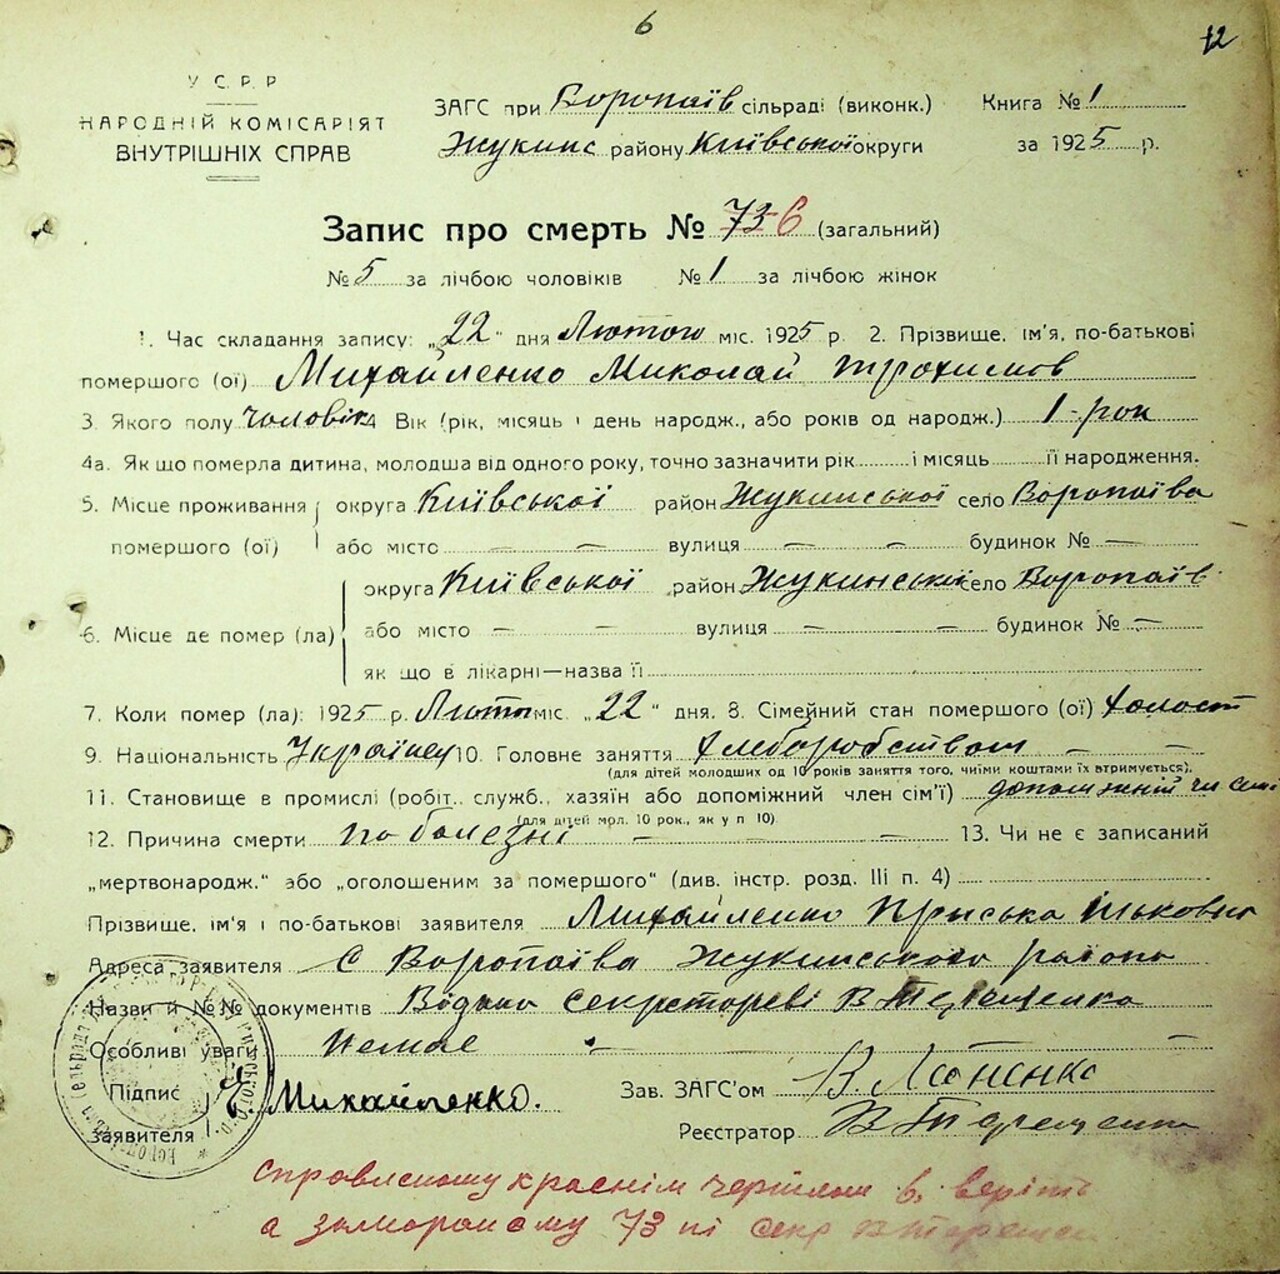 6
12
У С. Р. Р
НАРОДНІЙ КОМІСАРІЯТ
ВНУТРІШНІХ СПРАВ
ЗАГС при Воропаїв сільраді (виконк.) Книга № 1
Жукинс району Київської округи за 1925 р.
Запис про смерть № 73 6 (загальний)
№ 5 за лічбою чоловіків № 1 за лічбою жінок
1. Час складання запису: „22“ дня Лютого міс. 1925 р. 2. Прізвище, ім'я, по-батькові
помершого (ої) Михайленко Миколай Трохимов
3. Якого полу чоловік 4. Вік (рік, місяць і день народж., або років од народж.) 1-рок
4а. Як що померла дитина, молодша від одного року, точно зазначити рік і місяць її народження.
5. Місце проживання округа Київської район Жукинської село Воропаїва
помершого (ої) або місто — — вулиця — — будинок № —
округа Київської район Жукинської село Воропаїв
6. Місце де помер (ла) або місто — — вулиця — — будинок № —
як що в лікарні—назва її
7. Коли помер (ла): 1925 р. Лютого міс. „22“ дня. 8. Сімейний стан помершого (ої) холост
9. Національність Українец 10. Головне заняття хлеборобством — —
(для дітей молодших од 10 років заняття того, чиїми коштами їх втримується).
11. Становище в промислі (робіт., служб., хазяїн або допоміжний член сім'ї) допоміжний чл сем
(для дітей мол. 10 рок., як у п 10)
12. Причина смерти по болезні — — — 13. Чи не є записаний
„мертвонародж.“ або „оголошеним за помершого“ (див. інстр. розд. III п. 4)
Прізвище, ім'я і по-батькові заявителя Михайленко Прыська
Адреса заявителя С Воропаїва Жукинського района
Назви й №№ документів Відано Секретореві В Терещенко
Особливі уваги Немає — —
Підпис заявителя Михайленко.
Зав. ЗАГС'ом В.
Реєстратор В Терещенко
Справленому краснім чернілом 6 веріть
а 73 ні секр В Терещен